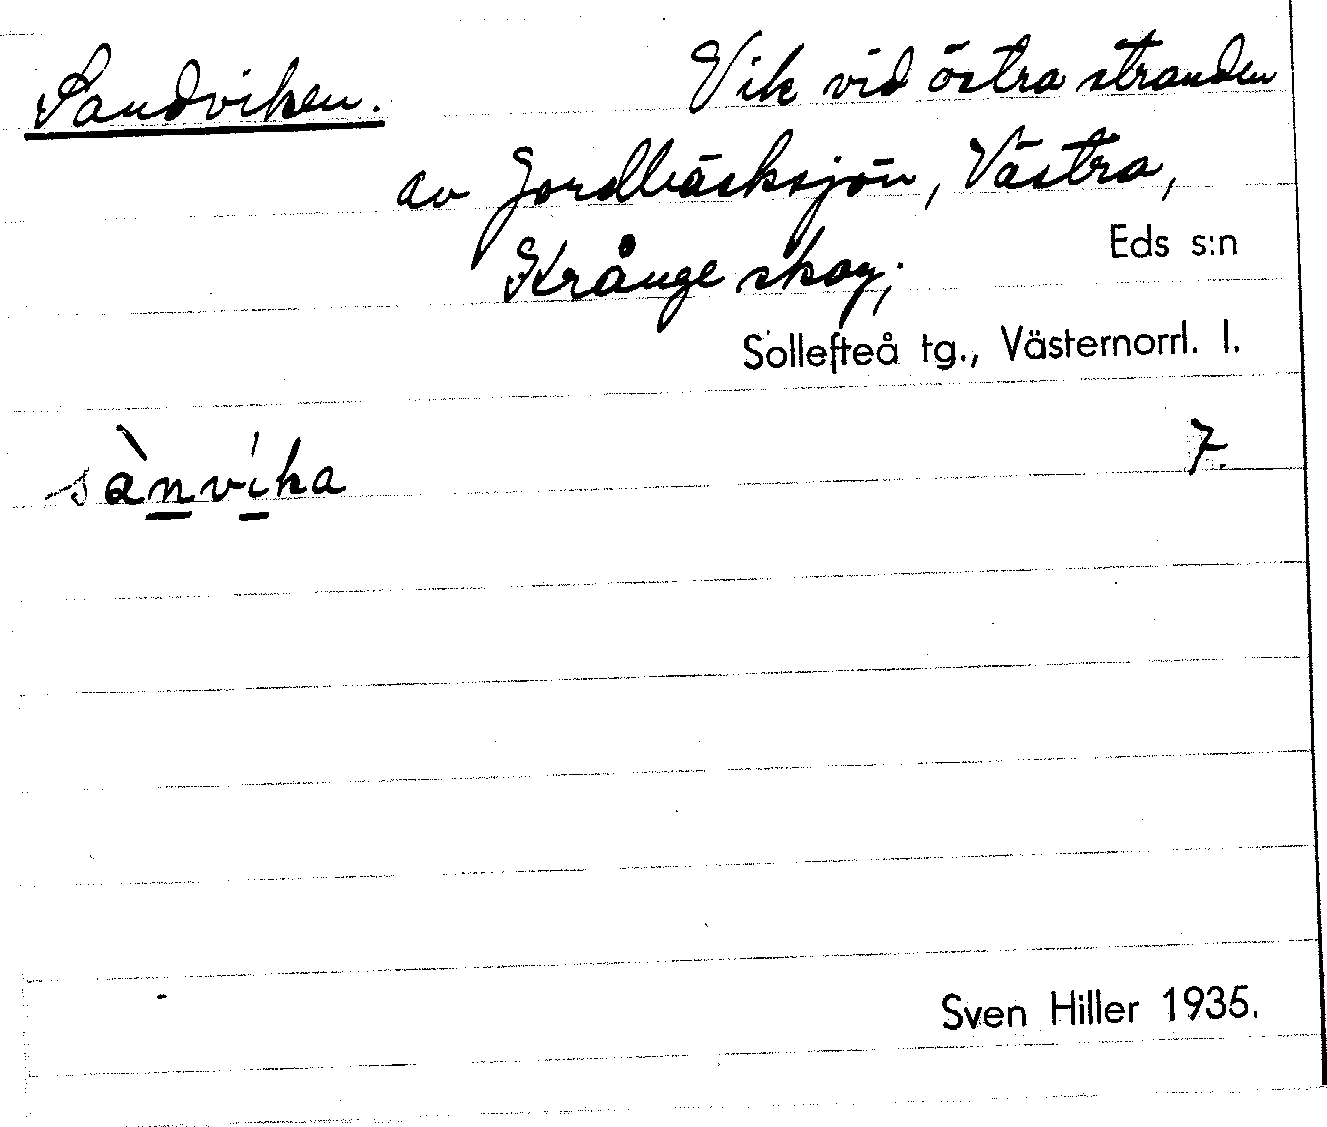 Sandviken. Vik vid östra stranden
av Jordbäcksjön, Västra,
Krånge skog;
Eds s:n
Sollefteå tg., Västernorrl. l.
sànvíka 7.
Sven Hiller 1935.